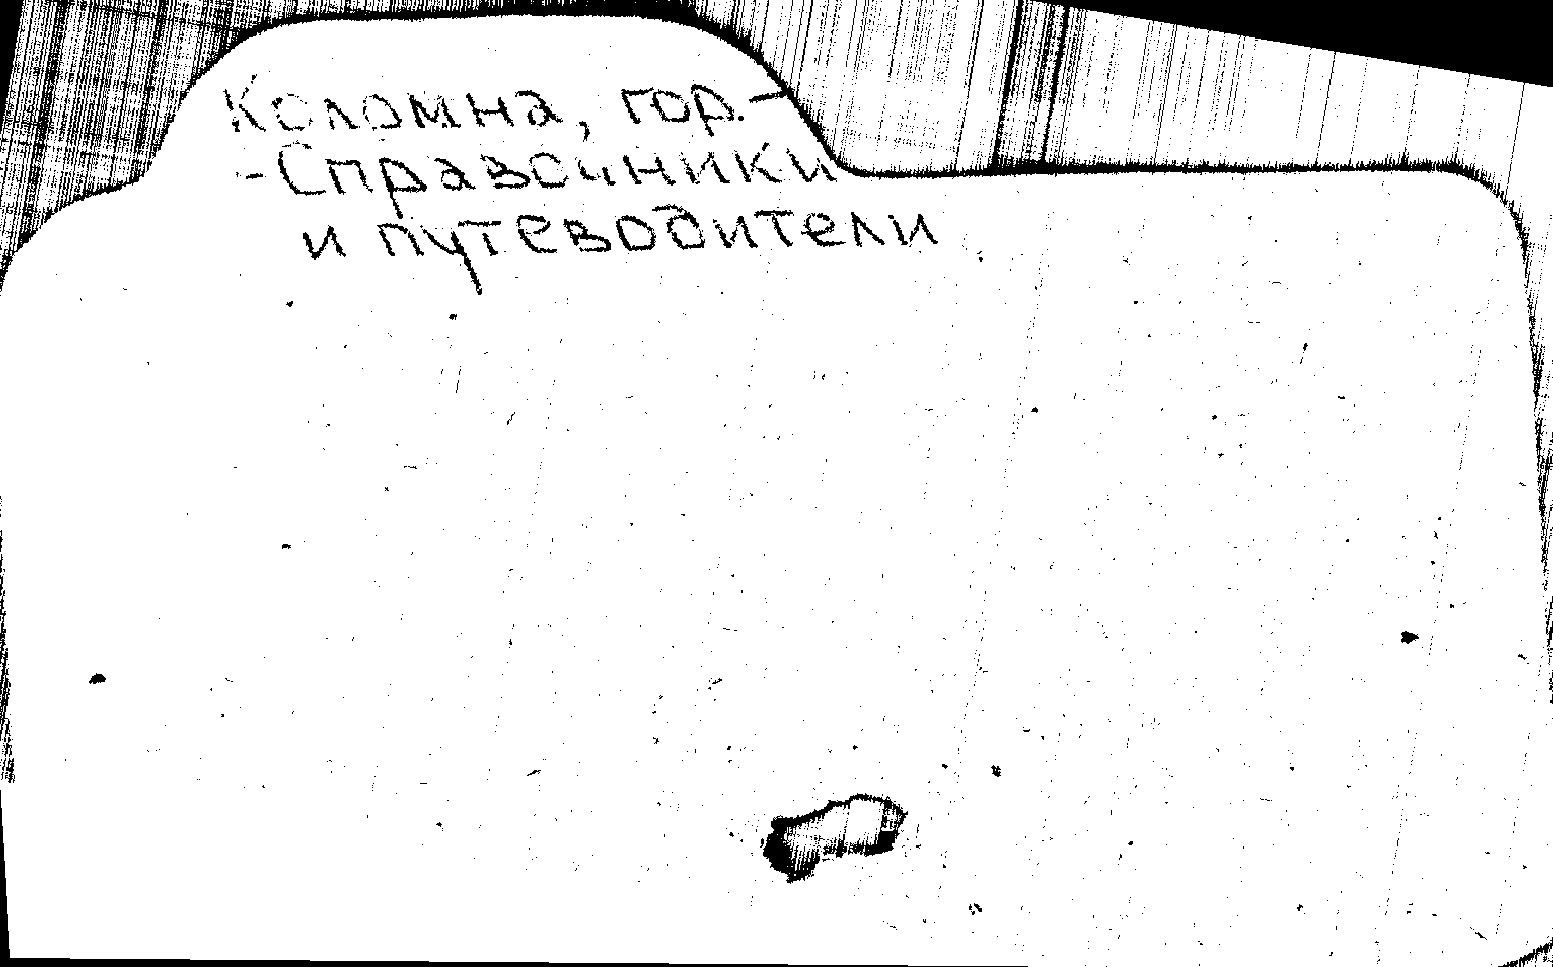 Коломна, гор. –
- Справочники
и путеводители